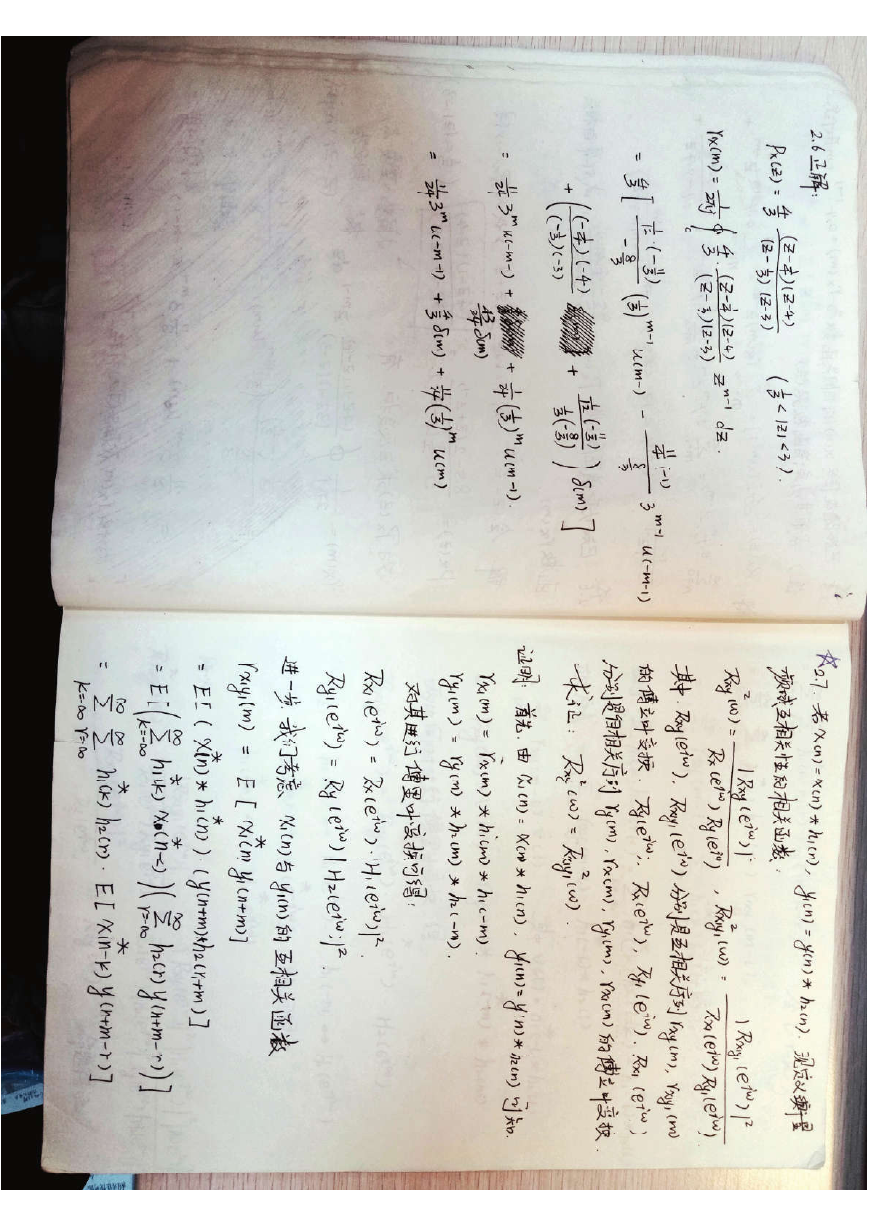 2.6 解:
Px(z) = 4/3 (z-1/4)(z-4) / (z-1/3)(z-3) (1/3<|z|<3).
rx(m) = 1/2πj ∮c 4/3 (z-1/4)(z-4) / (z-1/3)(z-3) z^m-1 dz.
= 4/3 [ 1/12·(-11/3) / -8/3 (1/3)^m-1 u(m-1) - 11/4·(-1) / 8/3 3^m-1 u(-m-1)
+ ( (-1/4)(-4) / (-1/3)(-3) + 1/12(-11/3) / 1/3(-8/3) ) δ(m) ]
= 11/24 3^m u(-m-1) + 43/24 δ(m) + 11/24 (1/3)^m u(m-1).
= 11/24 3^m u(-m-1) + 4/3 δ(m) + 11/24 (1/3)^m u(m)
☆2.7 若x1(n)=x(n)*h1(n), y1(n)=y(n)*h2(n). 现定义衡量
频域互相关性的相关函数:
Rxy²(ω) = |Rxy(e^jω)|² / Rx(e^jω)Ry(e^jω), Rx1y1²(ω) = |Rx1y1(e^jω)|² / Rx1(e^jω)Ry1(e^jω)
其中: Rxy(e^jω), Rx1y1(e^jω)分别是互相关序列rxy(m), rx1y1(m)
的傅立叶变换. Ry(e^jω), Rx(e^jω), Ry1(e^jω), Rx1(e^jω)
分别是自相关序列ry(m), rx(m), ry1(m), rx1(m)的傅立叶变换.
求证: Rxy²(ω) = Rx1y1²(ω).
证明: 首先, 由x1(n)=x(n)*h1(n), y1(n)=y(n)*h2(n)可知.
rx1(m) = rx(m)*h1(m)*h1(-m).
ry1(m) = ry(m)*h2(m)*h2(-m).
对其进行傅里叶变换可得:
Rx1(e^jω) = Rx(e^jω)·|H1(e^jω)|².
Ry1(e^jω) = Ry(e^jω)|H2(e^jω)|².
进一步, 我们考虑x1(n)与y1(n)的互相关函数
rx1y1(m) = E[x1*(n) y1(n+m)]
= E[(x*(n)*h1*(n))(y(n+m)*h2(n+m)]
= E[(∑k=-∞^∞ h1*(k) x*(n-k))(∑r=-∞^∞ h2(r)y(n+m-r))]
= ∑k=-∞^∞ ∑r=-∞^∞ h1*(k)h2(r)·E[x*(n-k)y(n+m-r)]